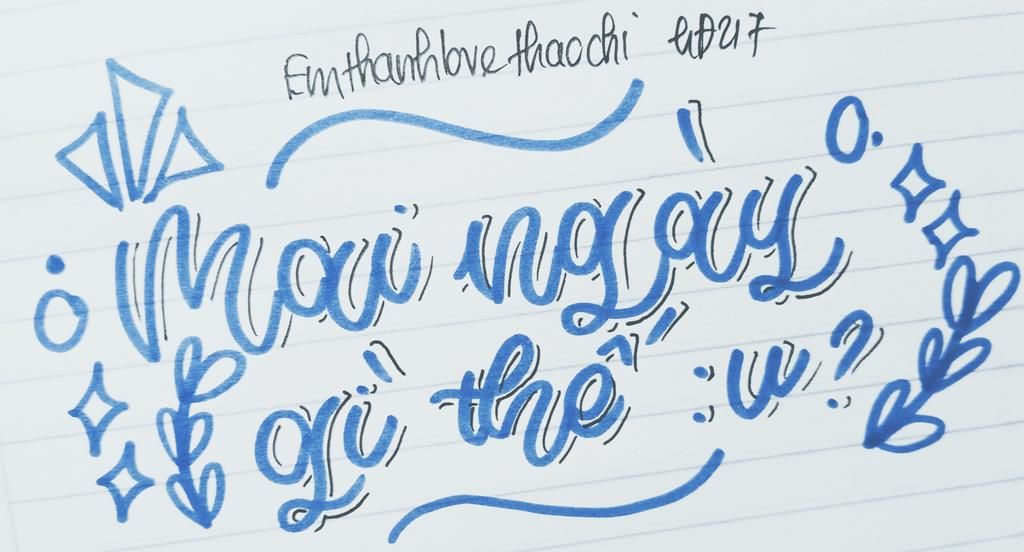 Emthanhlovethaochi
Mai ngày
gì thế :w?